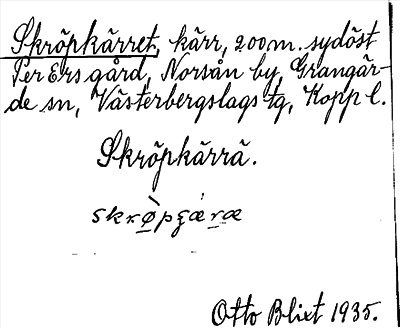 Skröpkärret, kärr, 200 m. sydöst
Per Ers gård, Norsån by, Grangär-
de sn, Västerbergslags tg, Kopp l.
Skröpkärrä.
skrø̀pçǽræ
Otto Blixt 1935.